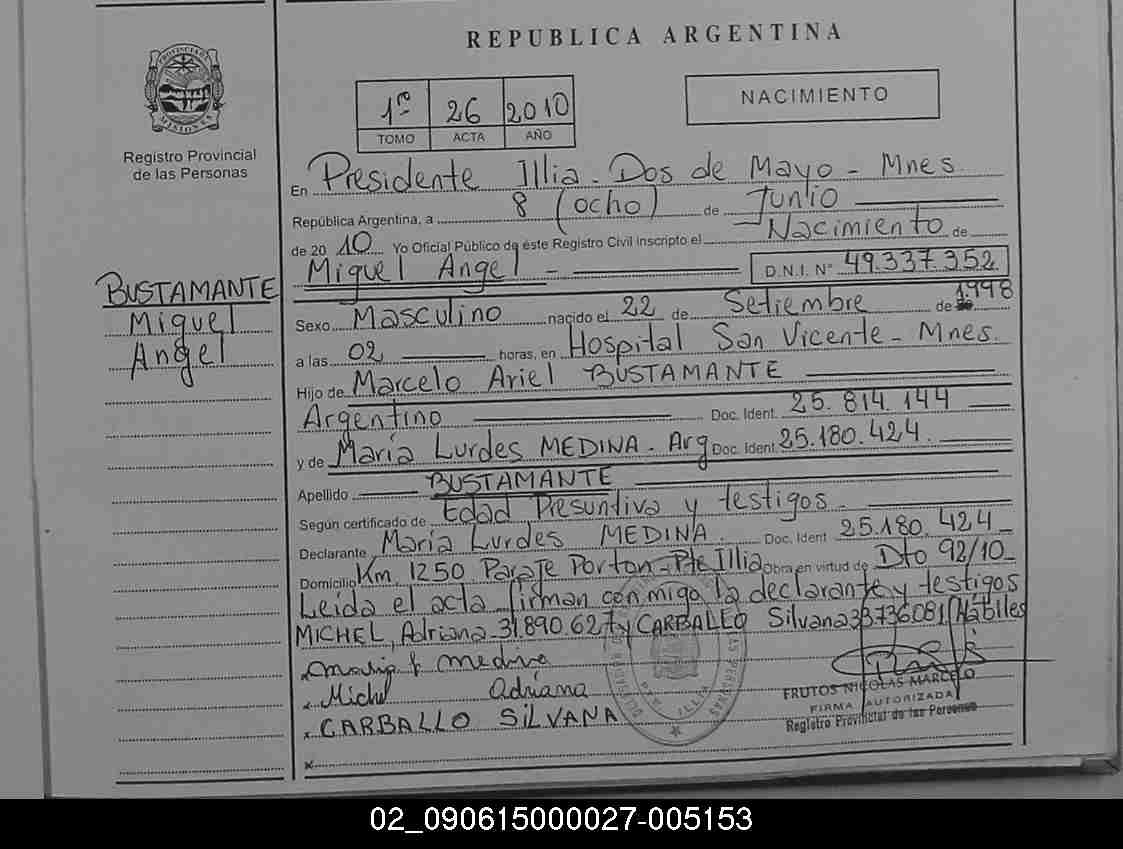 REPUBLICA ARGENTINA
PROVINCIA DE MISIONES
Registro Provincial
de las Personas
1ro 26 2010
TOMO ACTA AÑO
NACIMIENTO
En Presidente Illia - Dos de Mayo - Mnes.
República Argentina, a 8 (ocho) de Junio
de 2010 Yo Oficial Público de este Registro Civil inscripto el Nacimiento de
Miguel Angel - D.N.I. Nº 49.337.352
BUSTAMANTE
Miguel
Angel
Sexo Masculino nacido el 22 de Setiembre de 1.998
a las 02 horas, en Hospital San Vicente - Mnes.
Hijo de Marcelo Ariel BUSTAMANTE
Argentino Doc. Ident. 25.814.144
y de María Lurdes MEDINA - Arg Doc. Ident. 25.180.424.
Apellido BUSTAMANTE
Según certificado de Edad Presuntiva y testigos.
Declarante María Lurdes MEDINA. Doc. Ident 25.180.424
Domicilio Km. 1250 Paraje Porton - Pte Illia Obra en virtud de Dto 92/10
Leída el acta firman conmigo la declarante y testigos
MICHEL, Adriana - 31.890.627 y CARBALLO Silvana 33736081 Hábiles
medina
Michel Adriana
CARBALLO SILVANA
FRUTOS NICOLAS MARCELO
FIRMA AUTORIZADA
Registro Provincial de las Personas
02_090615000027-005153